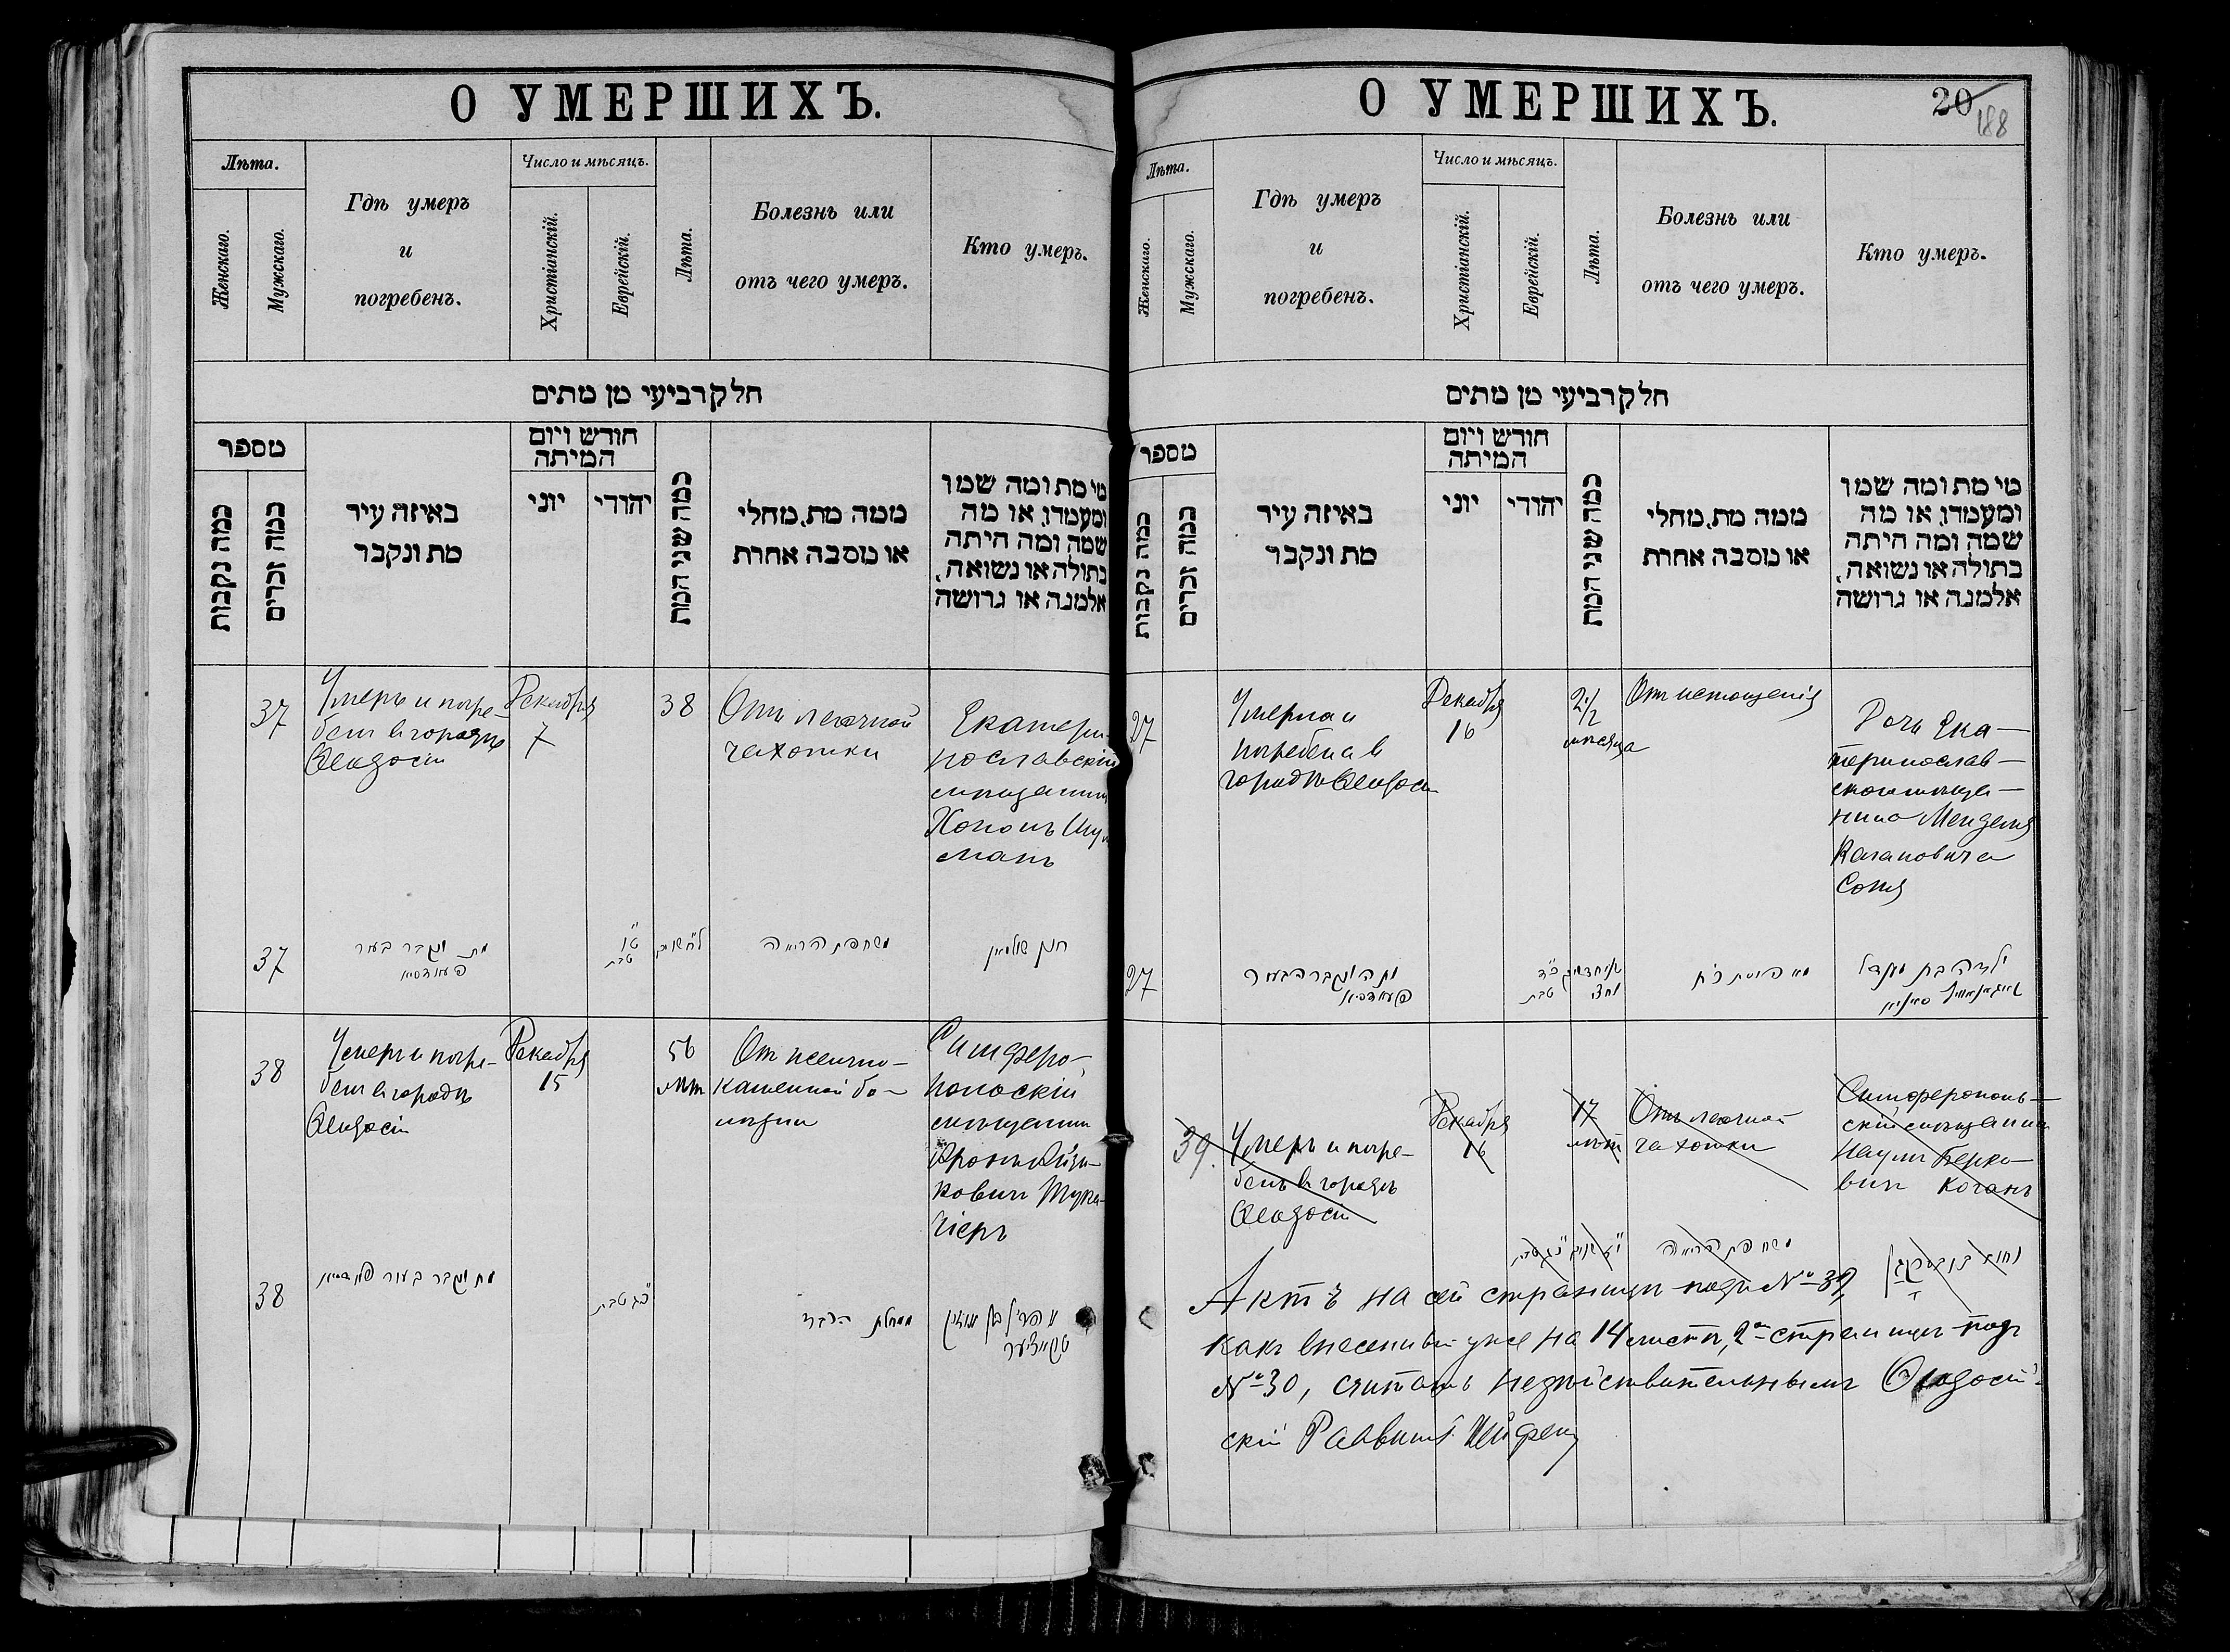 О УМЕРШИХЪ.
Лѣта.
Женскаго.
Мужскаго.
Гдѣ умеръ
и
погребенъ.
Число и мѣсяцъ.
Христіанскій.
Еврейскій.
Лѣта.
Болезнь или
отъ чего умеръ.
Кто умеръ.
חלק רביעי מן מתים
מספר
כמה נקבות
כמה זכרים
באיזה עיר
מת ונקבר
חודש ויום
המיתה
יוני
יהודי
כמה שני המת
ממה מת, מחלי
או מסבה אחרת
מי מת ומה שמו
ומעמדו, או מה
שמה ומה היתה
בתולה או נשואה,
אלמנה או גרושה
37
Умеръ и погре-
бенъ въ городѣ
Ѳеодосіи
Декабря
7
38
Отъ легочной
чахотки
Екатери-
нославскій
мѣщанинъ
Хононъ Шул
манъ
37
מת ונקבר בעיר
טו
טבת
חנן שולמאן
38
Умеръ и погре-
бенъ въ городѣ
Ѳеодосіи
Декабря
15
56
лѣт
От
каменной бо-
лѣзни
Симферо-
польскій
мѣщанин
38
מת ונקבר בעיר
כג טבת
О УМЕРШИХЪ.
20
188
Лѣта.
Женскаго.
Мужскаго.
Гдѣ умеръ
и
погребенъ.
Число и мѣсяцъ.
Христіанскій.
Еврейскій.
Лѣта.
Болезнь или
отъ чего умеръ.
Кто умеръ.
חלק רביעי מן מתים
מספר
כמה נקבות
כמה זכרים
באיזה עיר
מת ונקבר
חודש ויום
המיתה
יוני
יהודי
כמה שני המת
ממה מת, מחלי
או מסבה אחרת
מי מת ומה שמו
ומעמדו, או מה
שמה ומה היתה
בתולה או נשואה,
אלמנה או גרושה
27
Умерла и
погребена в
городѣ Ѳеодосіи
Декабря
16
2 1/2
мѣсяца
Отъ истощенія
Дочь Ека-
теринослав-
ского мѣща-
нина Менделя
Кагановича
Соня
27
כד
טבת
ילדה בת מנדל
39.
Умеръ и погре-
бенъ въ городѣ
Ѳеодосіи
Декабря
16
17
лѣт
Отъ легочной
чахотки
Симферополь-
скій мѣщанинъ
Наумъ Берко-
вич Коганъ
Актъ на сей страницѣ подъ № 39,
какъ внесенный уже на 14 листѣ, 2й страницѣ подъ
№ 30, считать недѣйствительнымъ Ѳеодосій-
скій Раввинъ